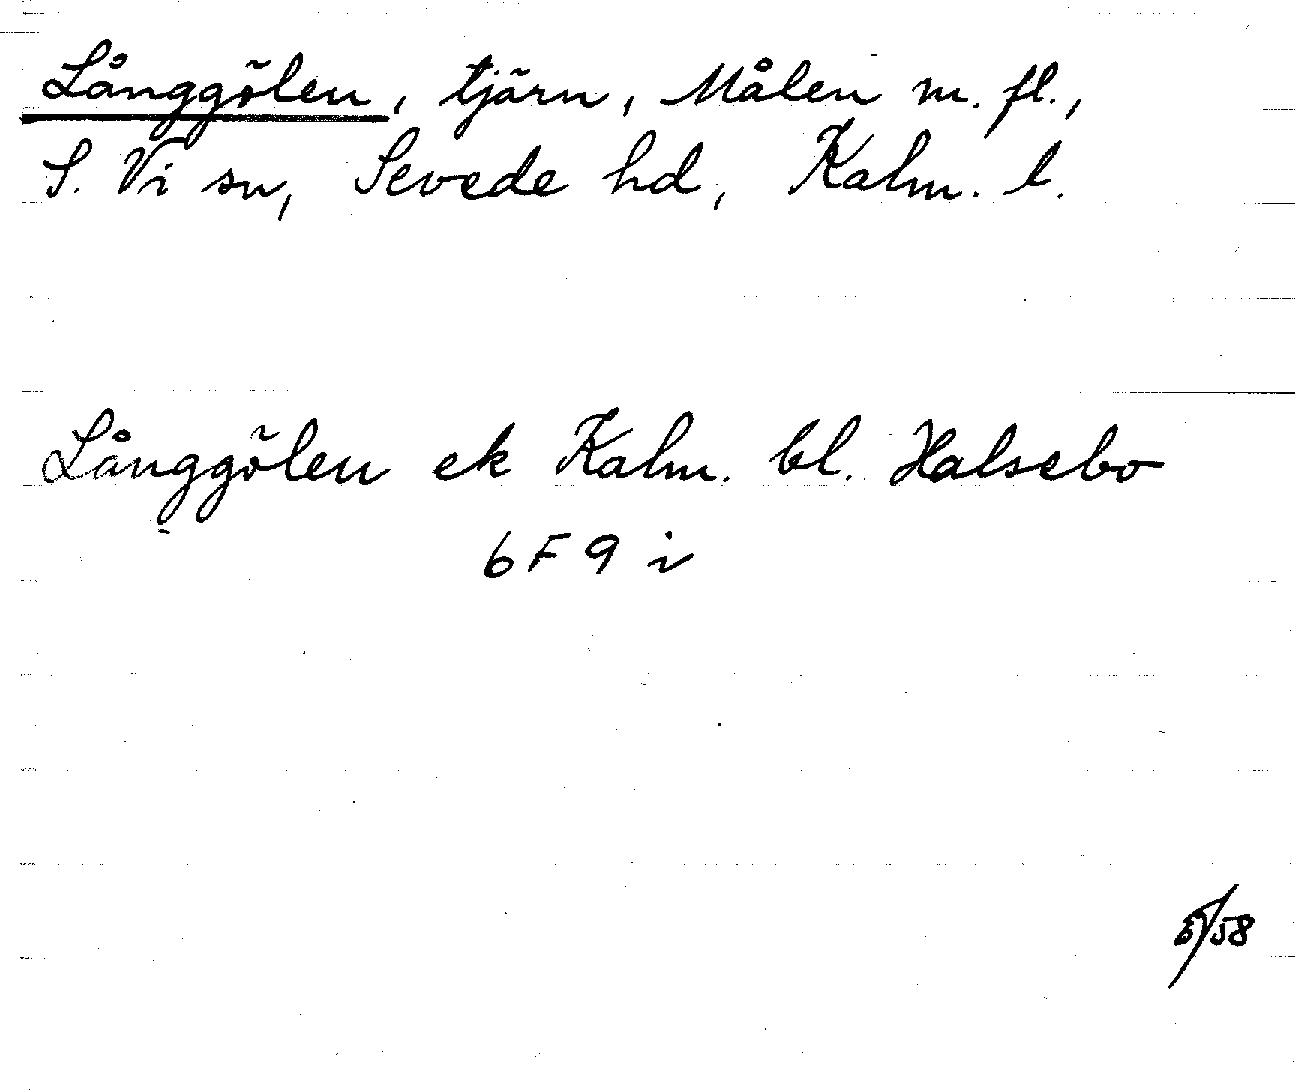 Långgölen, tjärn, Målen m. fl.,
S. Vi sn, Sevede hd, Kalm. l.
Långgölen ek Kalm. bl. Halsebo
6 F 9 i
5/58